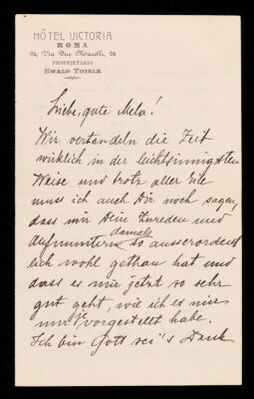 HÔTEL VICTORIA
ROMA
24, Via Due Macelli, 24
PROPRIETARIO
EWALD THIELE
Liebe, gute Mela!
Wir vertandeln die Zeit
wirklich in der leichtsinnigsten
Weise und trotz aller Eile
muss ich auch Dir noch sagen,
dass mir Dein Zureden und
damals
Aufmuntern so ausserordent
lich wohl gethan hat und
dass es mir jetzt so sehr
gut geht, wie ich es mir
nur je vorgestellt habe.
Ich bin Gott sei's Dank